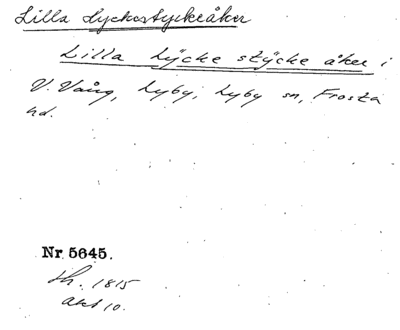 Lilla Lyckestyckeåker
Lilla Lÿcke stÿcke åker i
V. Vång, Lyby, Lyby sn, Frosta
hd.
Nr 5645.
Sh. 1815
akt 10.